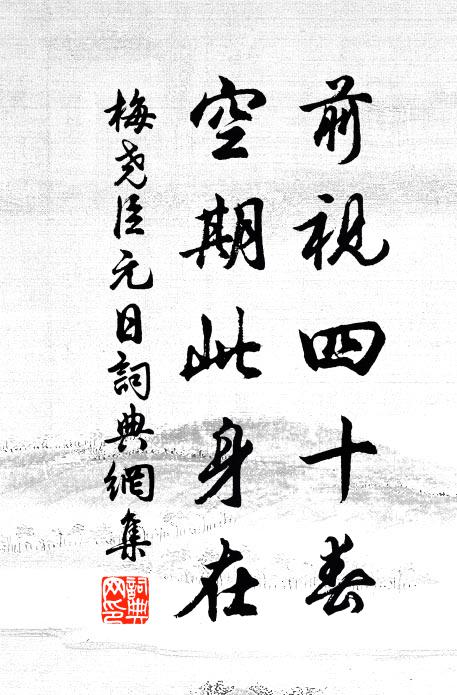 前視四十春
空期此身在
梅堯臣元日詞典網集
詞典網印